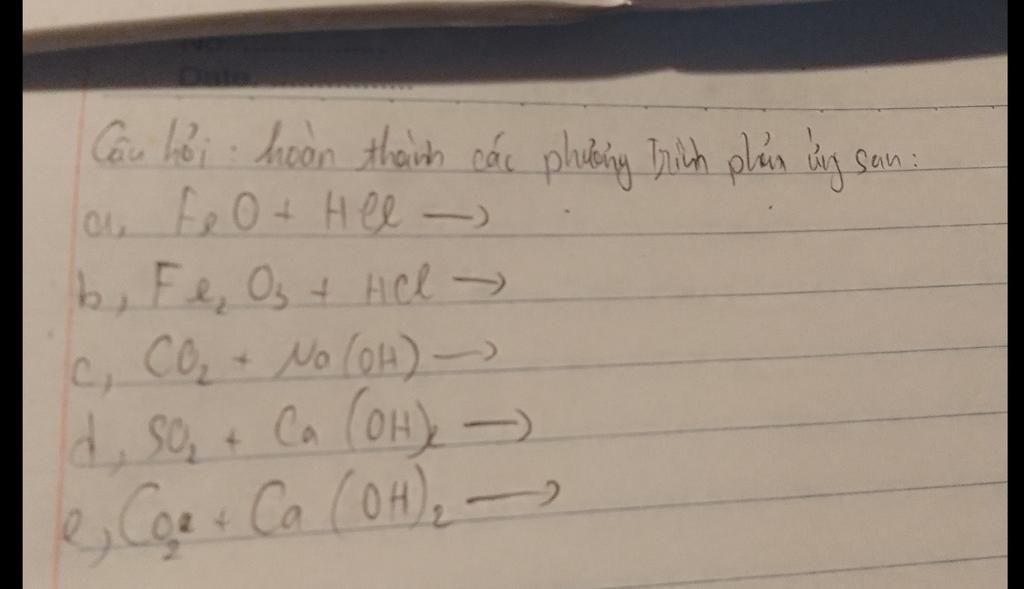 No
Date
Câu hỏi: hoàn thành các phương trình phản ứng sau:
a, FeO + HCl →
b, Fe₂O₃ + HCl →
c, CO₂ + Na(OH) →
d, SO₂ + Ca(OH)₂ →
e, CO₂ + Ca(OH)₂ →